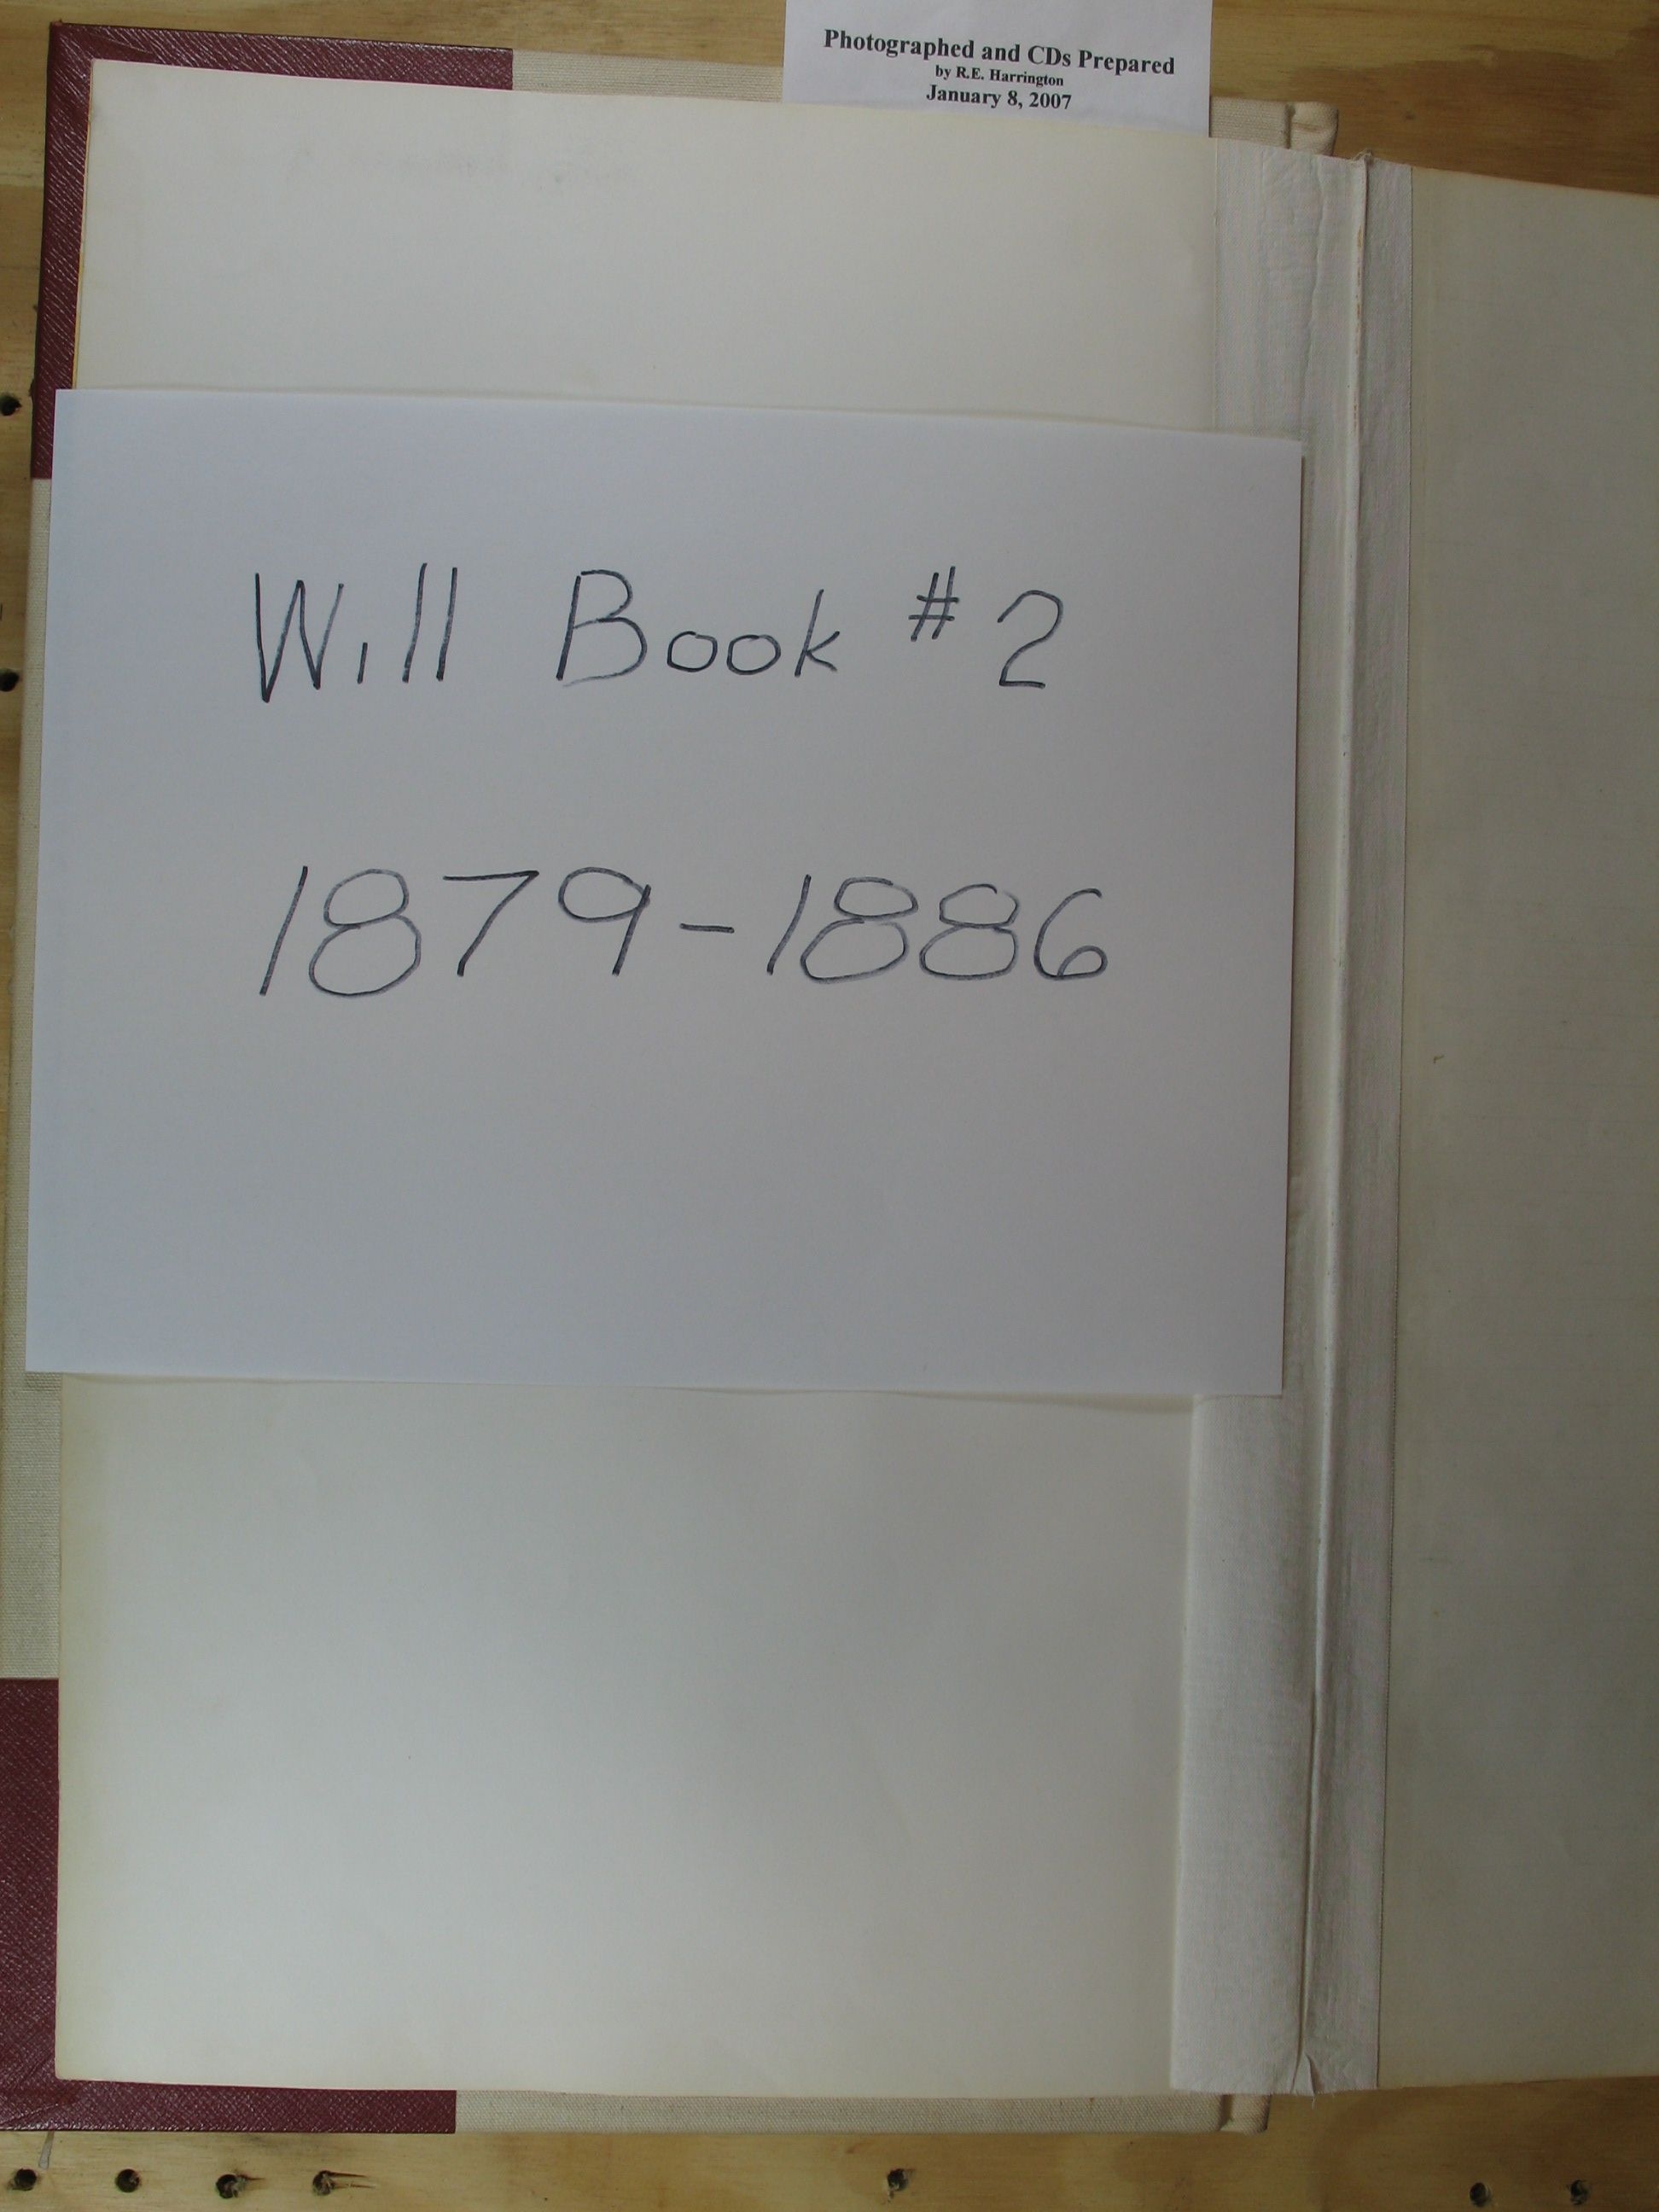 Photographed and CDs Prepared
by R.E. Harrington
January 8, 2007
Will Book #2
1879-1886